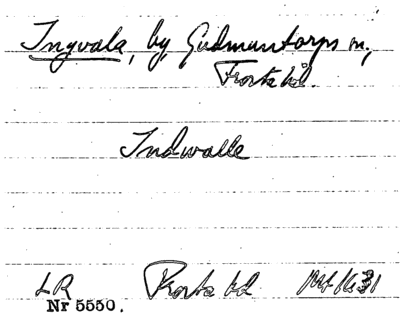 Ingvala, by, Gudmuntorps sn,
Frosta hd.
Indwalle
LR Frosta hd
Nr 5550.